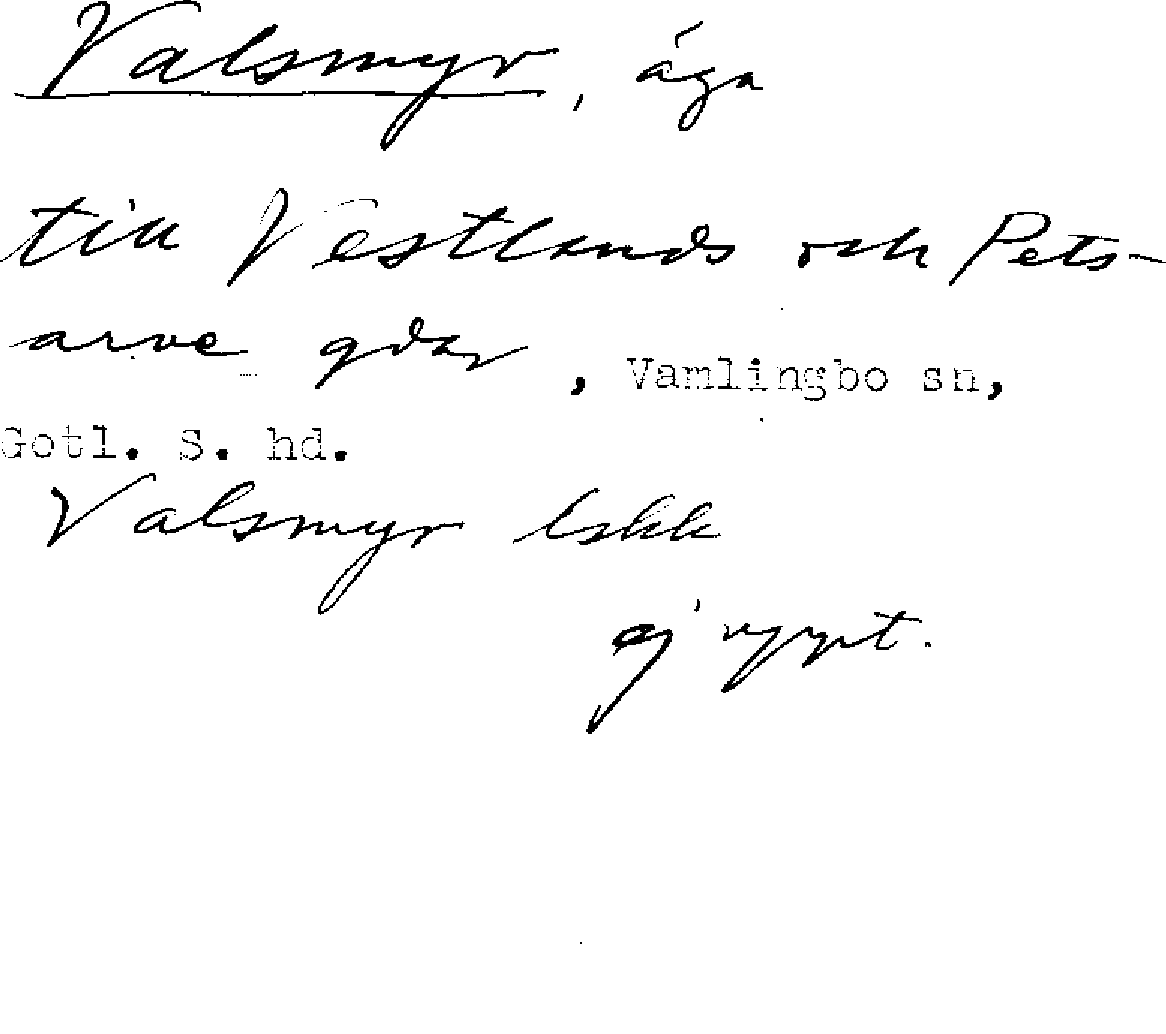 Valsmyr, äga
till Vestlands och Pets-
arve gdar, Vamlingbo sn,
Gotl. S. hd.
Valsmyr lskk
ej uppt.